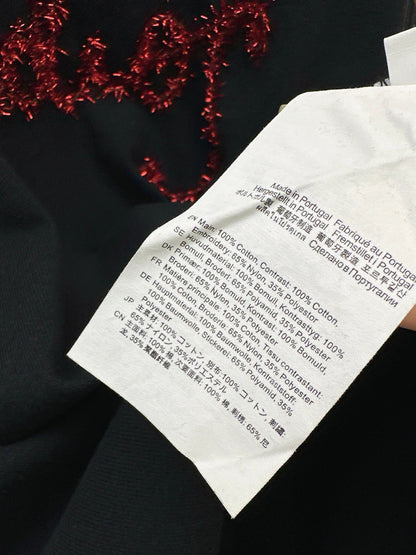 Made in Portugal Fabriqué au Portugal
Hergestellt in Portugal Fremstillet i Portugal
ポルトガル製 葡萄牙制造 葡萄牙製造 포르투갈산
ผลิตในโปรตุเกส Сделано в Португалии
EN Main: 100% Cotton, Contrast: 100% Cotton,
Embroidery: 65% Nylon, 35% Polyester
SE Huvudmaterial: 100% Bomull, Kontrasttyg: 100%
Bomull, Broderi: 65% Polyamid, 35% Polyester
DK Primær: 100% Bomuld, Kontrast: 100% Bomuld,
Broderi: 65% Nylon, 35% Polyester
FR Matière principale: 100% Coton, Tissu contrastant:
100% Coton, Broderie: 65% Nylon, 35% Polyester
DE Hauptmaterial: 100% Baumwolle, Kontraststoff:
100% Baumwolle, Stickerei: 65% Polyamid, 35%
Polyester
JP 主素材: 100% コットン, 別布: 100% コットン, 刺繍:
65% ナイロン, 35% ポリエステル
CN 主面料: 100% 棉, 次要面料: 100% 棉, 刺绣: 65% 尼
龙, 35% 聚酯纤维